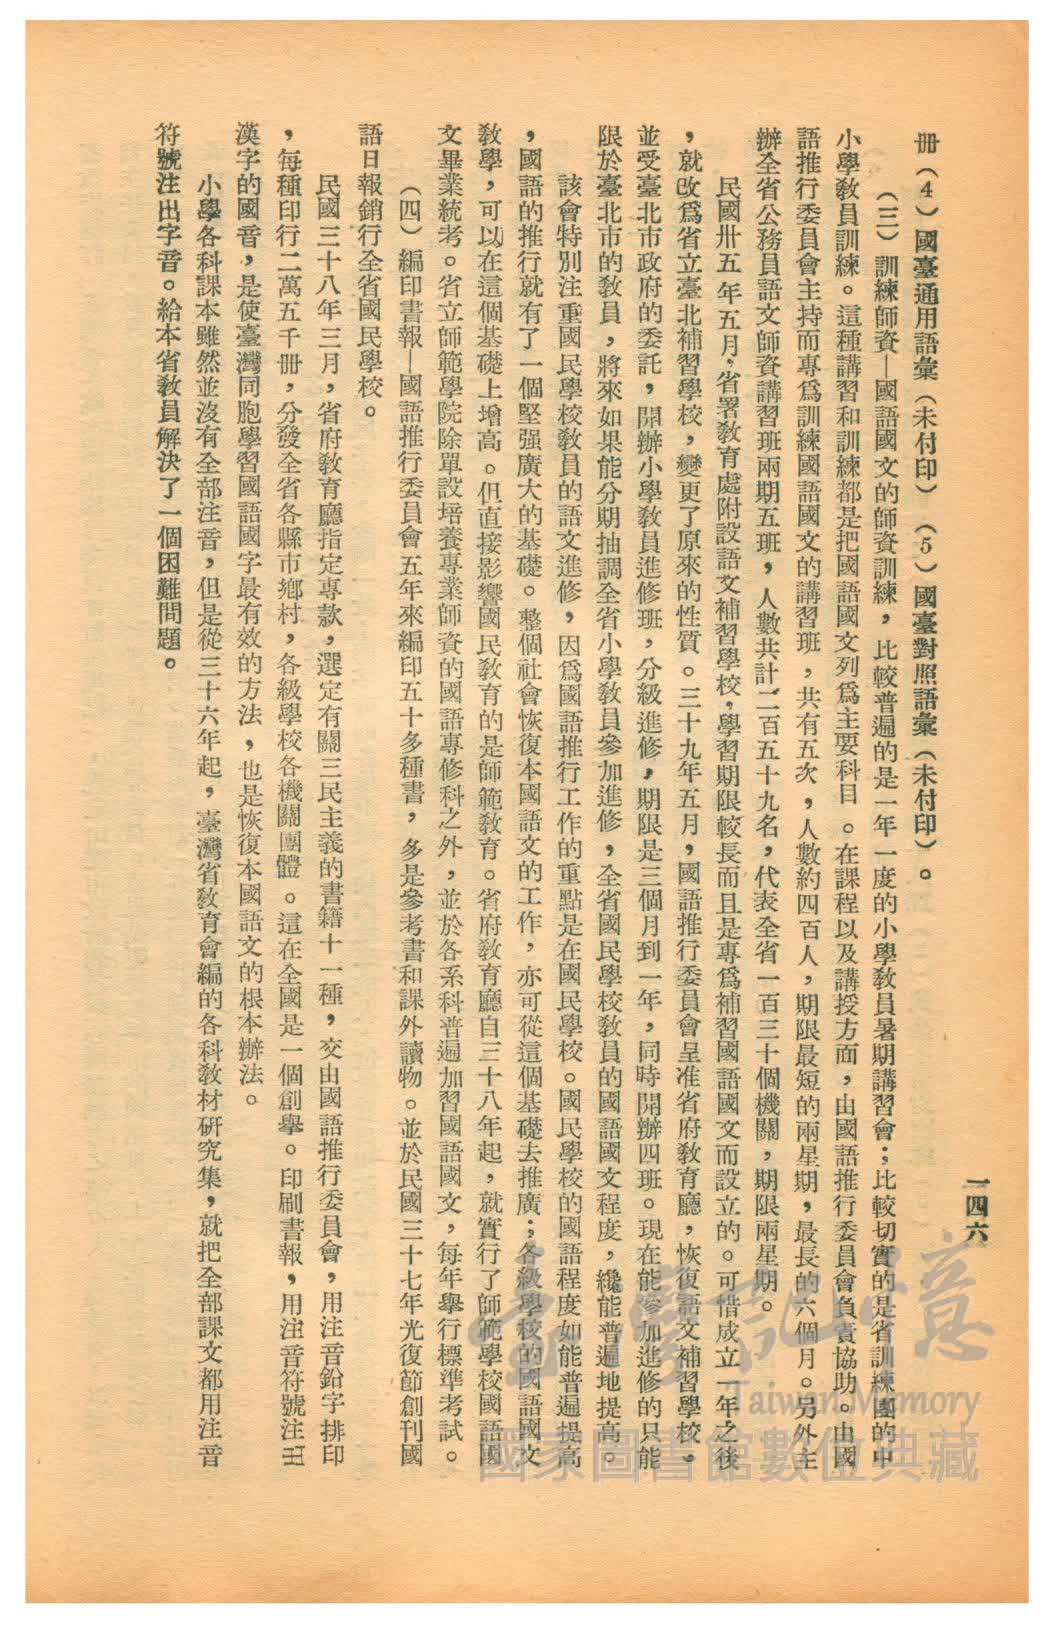 一四六
冊（４）國臺通用語彙（未付印）（５）國臺對照語彙（未付印）。
（三）訓練師資—國語國文的師資訓練，比較普遍的是一年一度的小學教員暑期講習會；比較切實的是省訓練團的中
小學教員訓練。這種講習和訓練都是把國語國文列爲主要科目。在課程以及講授方面，由國語推行委員會負責協助。由國
語推行委員會主持而專爲訓練國語國文的講習班，共有五次，人數約四百人，期限最短的兩星期，最長的六個月。另外主
辦全省公務員語文師資講習班兩期五班，人數共計二百五十九名，代表全省一百三十個機關，期限兩星期。
民國卅五年五月，省署教育處附設語文補習學校，學習期限較長而且是專爲補習國語國文而設立的。可惜成立一年之後
，就改爲省立臺北補習學校，變更了原來的性質。三十九年五月，國語推行委員會呈准省府教育廳，恢復語文補習學校，
並受臺北市政府的委託，開辦小學教員進修班，分級進修，期限是三個月到一年，同時開辦四班。現在能參加進修的只能
限於臺北市的教員，將來如果能分期抽調全省小學教員參加進修，全省國民學校教員的國語國文程度，纔能普遍地提高。
該會特別注重國民學校教員的語文進修，因爲國語推行工作的重點是在國民學校。國民學校的國語程度如能普遍提高
，國語的推行就有了一個堅强廣大的基礎。整個社會恢復本國語文的工作，亦可從這個基礎去推廣；各級學校的國語國文
教學，可以在這個基礎上增高。但直接影響國民教育的是師範教育。省府教育廳自三十八年起，就實行了師範學校國語國
文畢業統考。省立師範學院除單設培養專業師資的國語專修科之外，並於各系科普遍加習國語國文，每年舉行標準考試。
（四）編印書報—國語推行委員會五年來編印五十多種書，多是參考書和課外讀物。並於民國三十七年光復節創刊國
語日報銷行全省國民學校。
民國三十八年三月，省府教育廳指定專款，選定有關三民主義的書籍十一種，交由國語推行委員會，用注音鉛字排印
，每種印行二萬五千冊，分發全省各縣市鄉村，各級學校各機關團體。這在全國是一個創舉。印刷書報，用注音符號注出
漢字的國音，是使臺灣同胞學習國語國字最有效的方法，也是恢復本國語文的根本辦法。
小學各科課本雖然並沒有全部注音，但是從三十六年起，臺灣省教育會編的各科教材研究集，就把全部課文都用注音
符號注出字音。給本省教員解決了一個困難問題。
臺灣記憶
Taiwan Memory
國家圖書館數位典藏